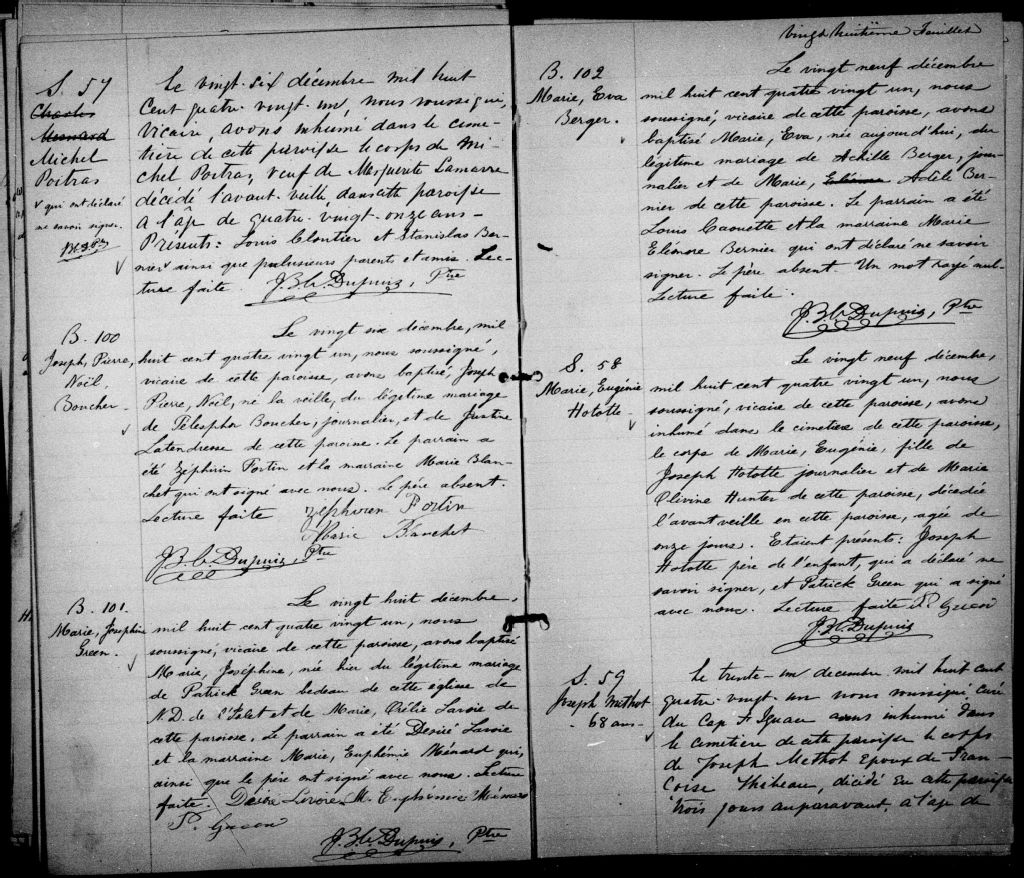 S. 57
Charles
Mesnard
Michel
Poitras
qui ont déclaré
ne savoir signer.
Le vingt-six décembre mil huit
Cent quatre-vingt-un, nous soussigné,
Vicaire, avons inhumé dans le cime-
tière de cette paroisse le corps de Mi-
chel Poitras, veuf de Marguerite Lamarre
décédé l'avant-veille, dans cette paroisse
à l'âge de quatre-vingt-onze ans-
Présents: Louis Cloutier et Stanislas Ber-
nier ainsi que plusieurs parents et amis. Lec-
ture faite. J.B.C. Dupuis, Ptre
B. 100
Joseph, Pierre,
Noël,
Boucher.
Le vingt six décembre, mil
huit cent quatre vingt un, nous soussigné,
vicaire de cette paroisse, avons baptisé Joseph
Pierre, Noël, né la veille, du légitime mariage
de Télesphor Boucher, journalier, et de Justine
Latendresse de cette paroisse. Le parrain a
été Zéphirin Fortin et la marraine Marie Blan-
chet qui ont signé avec nous. Le père absent.
Lecture faite Zephiren Fortin
Marie Blanchet
J.B.C. Dupuis, Ptre
B. 101.
Marie, Josephine
Green.
Le vingt huit décembre,
mil huit cent quatre vingt un, nous
soussigné, vicaire de cette paroisse, avons baptisé
Marie, Joséphine, née hier du légitime mariage
de Patrick Green bedeau de cette église de
N.D. de l'Islet et de Marie, Orélie Lavoie de
cette paroisse. Le parrain a été Desiré Lavoie
et la marraine Marie, Euphémie Ménard qui,
ainsi que le père ont signé avec nous. Lecture
faite. Desire Lavoie M. Euphémie Ménard
P. Green
J.B.C. Dupuis, Ptre
Vingt huitième Feuillet
B. 102
Marie, Eva
Berger.
Le vingt neuf décembre
mil huit cent quatre vingt un, nous
soussigné, vicaire de cette paroisse, avons
baptisé Marie, Eva, née aujourd'hui, du
légitime mariage de Achille Berger, jour-
nalier et de Marie, Adèle Ber-
nier de cette paroisse. Le parrain a été
Louis Caouette et la marraine Marie
Elénore Bernier qui ont déclaré ne savoir
signer. Le père absent. Un mot rayé nul.
Lecture faite.
J.B.C. Dupuis, Ptre
S. 58
Marie, Eugénie
Hototte
Le vingt neuf décembre,
mil huit cent quatre vingt un, nous
soussigné, vicaire de cette paroisse, avons
inhumé dans le cimetière de cette paroisse,
le corps de Marie, Eugénie, fille de
Joseph Hototte journalier et de Marie
Olivine Hunter de cette paroisse, décédée
l'avant veille en cette paroisse, agée de
onze jours. Etaient présents: Joseph
Hototte père de l'enfant, qui a déclaré ne
savoir signer, et Patrick Green qui a signé
avec nous. Lecture faite P. Green
J.B.C. Dupuis
S. 59
Joseph Methot
68 ans
Le trente-un decembre mil huit cent
quatre-vingt-un nous soussigné curé
du Cap St Ignace avons inhumé dans
le cimetiere de cette paroisse le corps
de Joseph Methot Epoux de Fran-
coise Thibeau, décidé en cette paroisse
trois jours auparavant, à l'age de